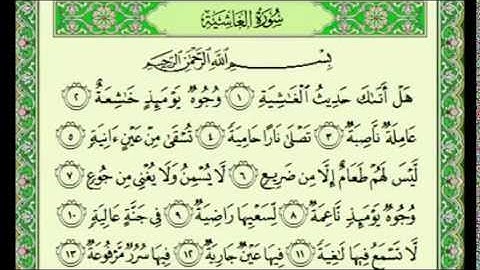 سُورَةُ الغَاشِيَةِ
بِسْمِ اللَّهِ الرَّحْمَٰنِ الرَّحِيمِ
هَلْ أَتَىٰكَ حَدِيثُ ٱلْغَٰشِيَةِ ١ وُجُوهٌ يَوْمَئِذٍ خَٰشِعَةٌ ٢
عَامِلَةٌ نَّاصِبَةٌ ٣ تَصْلَىٰ نَارًا حَامِيَةً ٤ تُسْقَىٰ مِنْ عَيْنٍ ءَانِيَةٍ ٥
لَّيْسَ لَهُمْ طَعَامٌ إِلَّا مِن ضَرِيعٍ ٦ لَّا يُسْمِنُ وَلَا يُغْنِي مِن جُوعٍ ٧
وُجُوهٌ يَوْمَئِذٍ نَّاعِمَةٌ ٨ لِّسَعْيِهَا رَاضِيَةٌ ٩ فِي جَنَّةٍ عَالِيَةٍ ١٠
لَّا تَسْمَعُ فِيهَا لَٰغِيَةً ١١ فِيهَا عَيْنٌ جَارِيَةٌ ١٢ فِيهَا سُرُرٌ مَّرْفُوعَةٌ ١٣